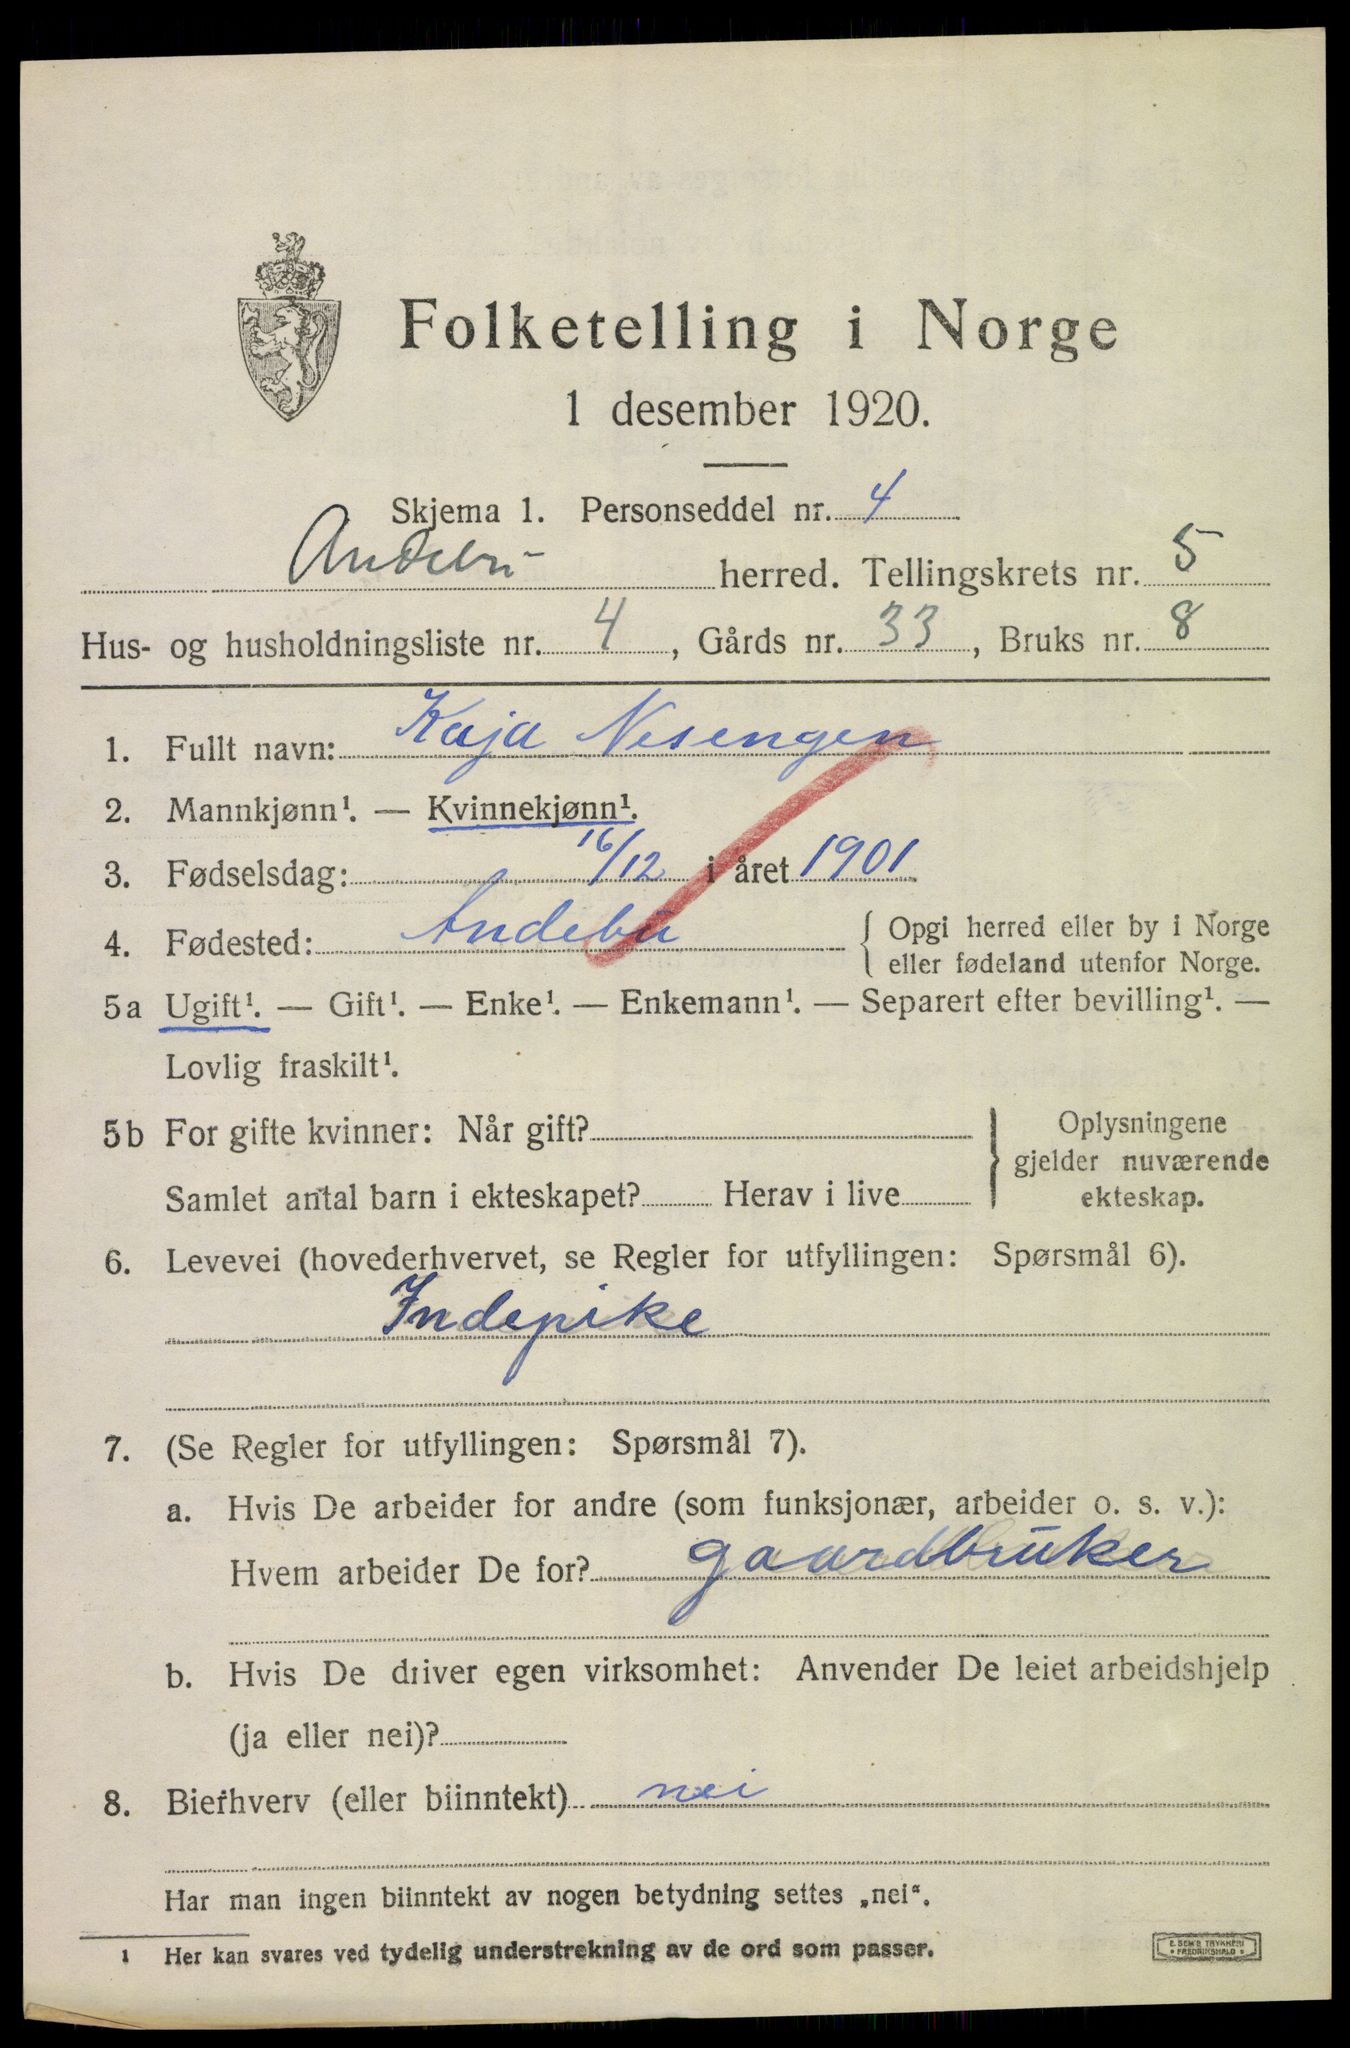 Folketelling i Norge
1 desember 1920.
Skjema 1. Personseddel nr. 4
Andebu herred. Tellingskrets nr. 5
Hus- og husholdningsliste nr. 4, Gårds nr. 33, Bruks nr. 8
1. Fullt navn: Kaja Nesengen
2. Mannkjønn¹. — Kvinnekjønn¹.
3. Fødselsdag: 16/12 i året 1901
4. Fødested: Andebu { Opgi herred eller by i Norge
eller fødeland utenfor Norge.
5a Ugift¹. — Gift¹. — Enke¹. — Enkemann¹. — Separert efter bevilling¹. —
Lovlig fraskilt¹.
5b For gifte kvinner: Når gift?
Samlet antal barn i ekteskapet? Herav i live
} Oplysningene
gjelder nuværende
ekteskap.
6. Levevei (hovederhvervet, se Regler for utfyllingen: Spørsmål 6).
Indepike
7. (Se Regler for utfyllingen: Spørsmål 7).
a. Hvis De arbeider for andre (som funksjonær, arbeider o. s. v.):
Hvem arbeider De for? gaardbruker
b. Hvis De driver egen virksomhet: Anvender De leiet arbeidshjelp
(ja eller nei)?
8. Bierhverv (eller biinntekt) nei
Har man ingen biinntekt av nogen betydning settes „nei“.
1 Her kan svares ved tydelig understrekning av de ord som passer.
E. SEM'S TRYKKERI
• FREDRIKSHALD •